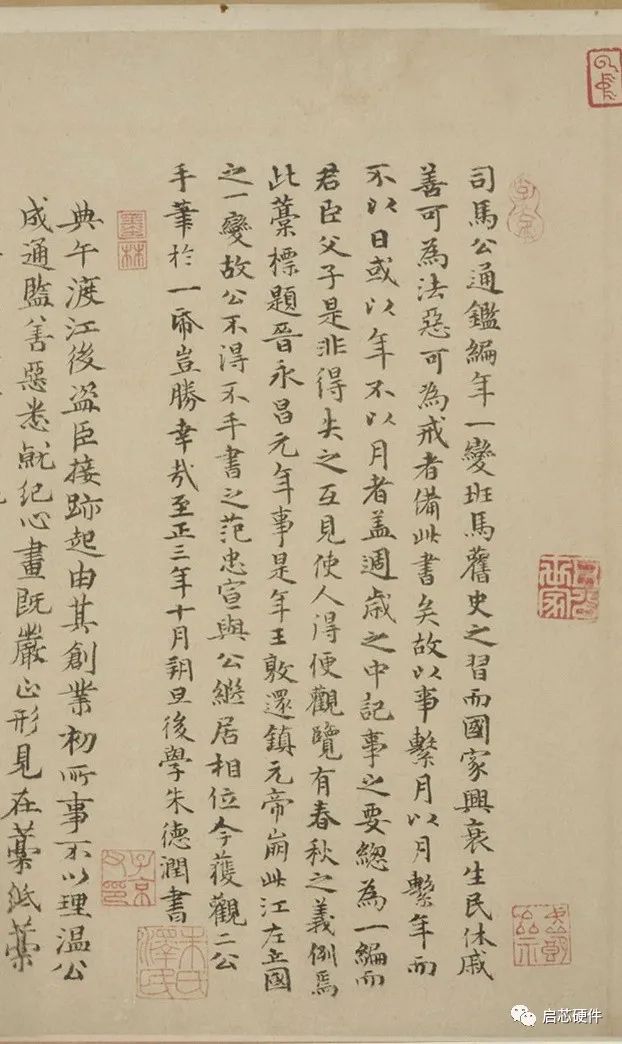 司馬公通鑑編年一變班馬舊史之習而國家興衰生民休戚
善可為法惡可為戒者備此書矣故以事繫月以月繫年而
不以日或以年不以月者蓋週歲之中記事之要總為一編而
君臣父子是非得失之互見使人得便觀覽有春秋之義例焉
此藁標題晉永昌元年事是年王敦還鎮元帝崩此江左立國
之一變故公不得不手書之范忠宣與公繼居相位今獲觀二公
手筆於一帋豈勝幸哉至正三年十月朔旦後學朱德潤書
典午渡江後盜臣接跡起由其創業初所事不以理溫公
成通監善惡悉就紀心畫既嚴正形見在藁紙藁
墨林
子京父印
朱氏澤民
启芯硬件